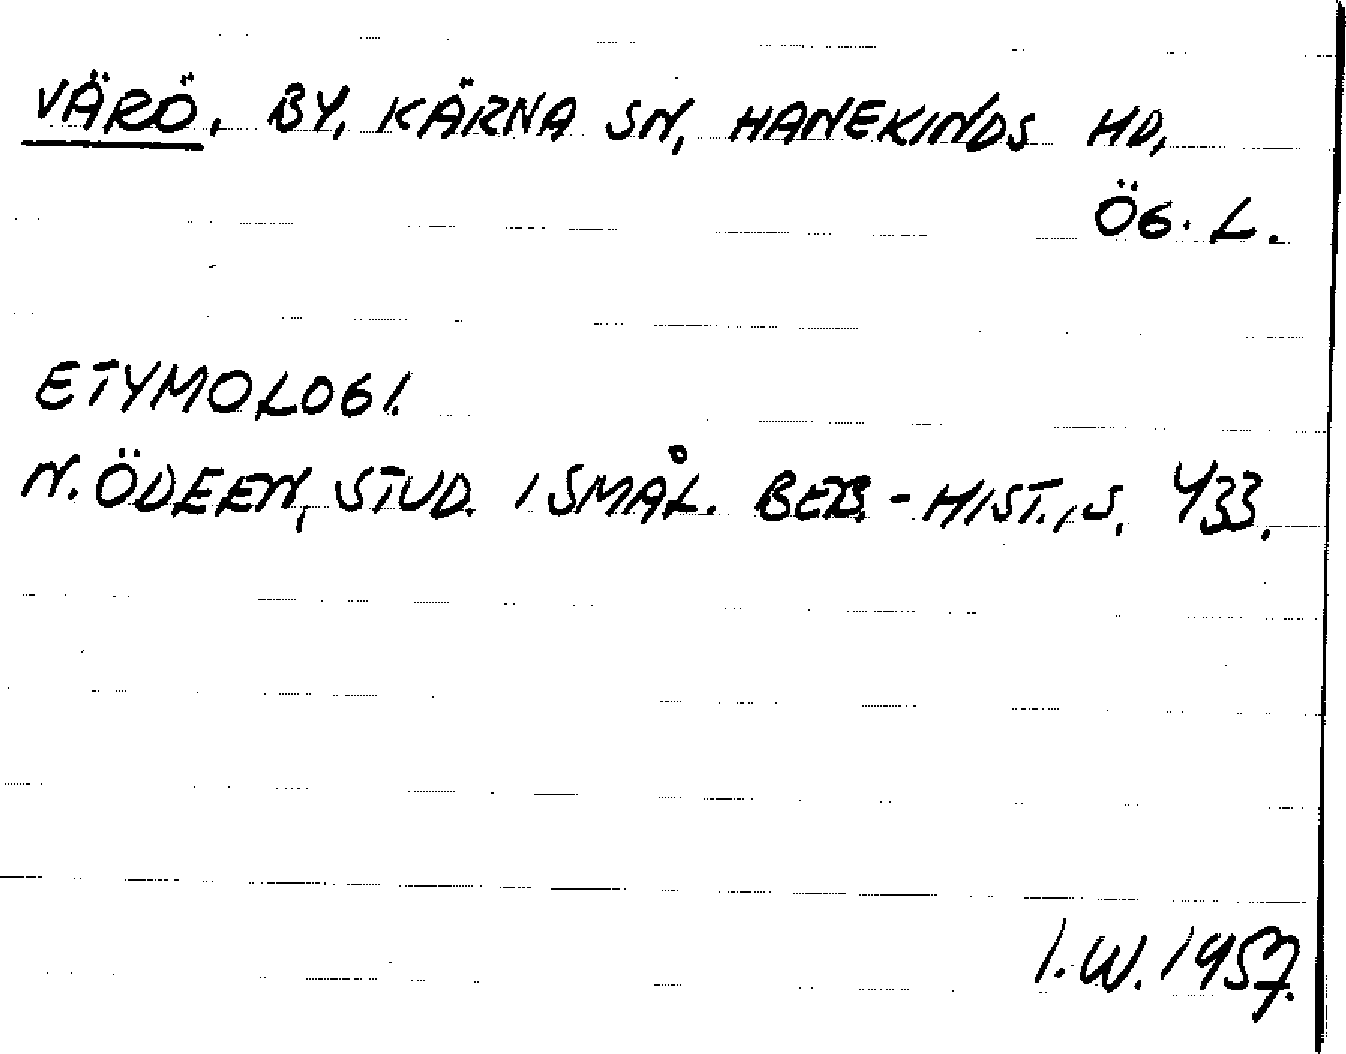 VÄRÖ, BY, KÄRNA SN, HANEKINDS HD,
ÖG. L.
ETYMOLOGI.
N. ÖDEEN, STUD. I SMÅL. BEB.-HIST., S. 433.
I.W. 1957.